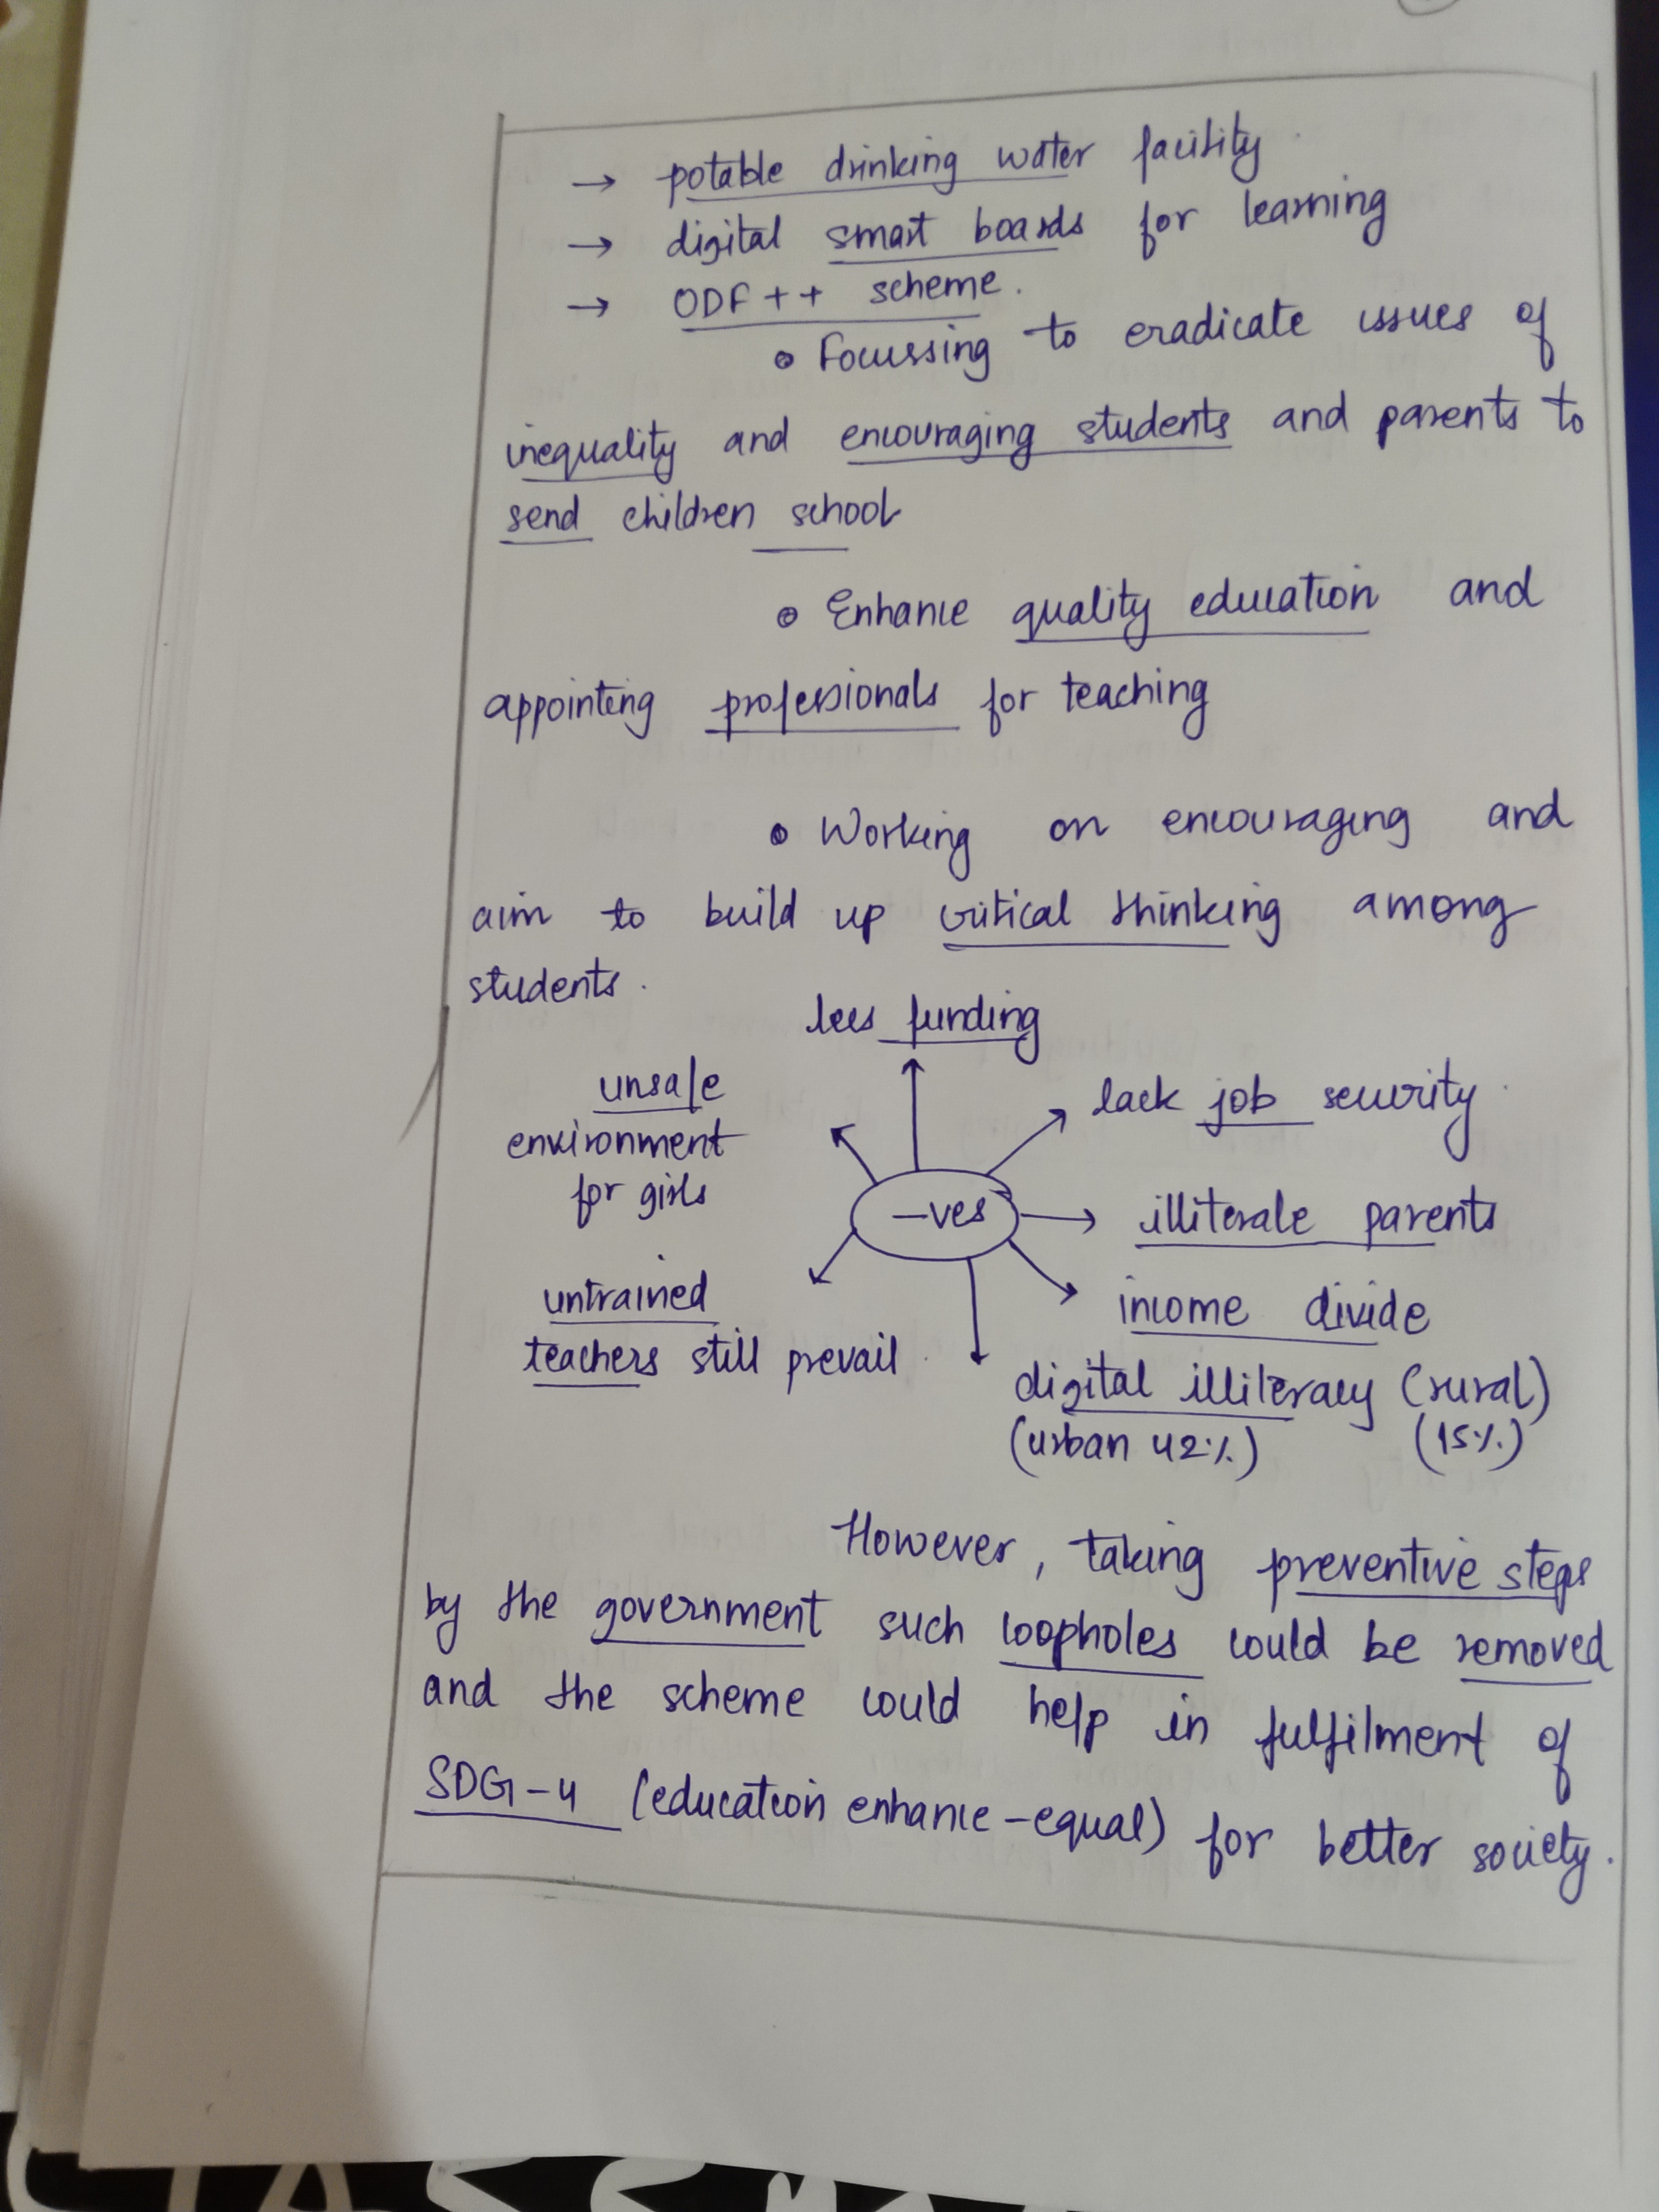 → potable drinking water facility
→ digital smart boards for learning
→ ODF++ scheme.
• Focussing to eradicate issues of
inequality and encouraging students and parents to
send children school
• Enhance quality education and
appointing professionals for teaching
• Working on encouraging and
aim to build up critical thinking among
students.
less funding
unsafe
environment
for girls
lack job security
-ves
illiterate parents
untrained
teachers still prevail
income divide
digital illiteracy (rural)
(urban 42%) (15%)
However, taking preventive steps
by the government such loopholes could be removed
and the scheme could help in fulfilment of
SDG-4 (education enhance-equal) for better society.